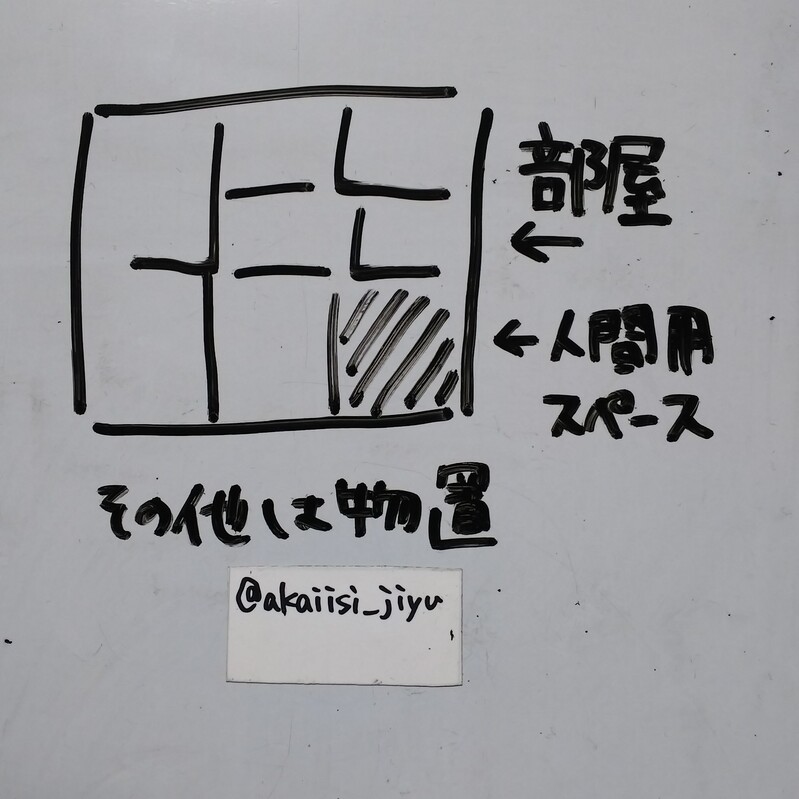 部屋
←
← 人間用
スペース
その他は物置
@akaiisi_jiyu